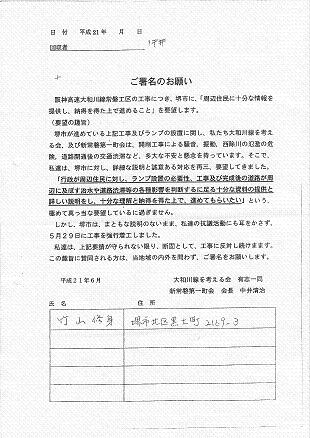 日 付 平成21年 月 日
回収者
ご署名のお願い
阪神高速大和川線常磐工区の工事につき、堺市に、「周辺住民に十分な情報を
提供し、納得を得た上で進めること」を要望します。
（要望の趣旨）
堺市が進めている上記工事及びランプの設置に関し、私たち大和川線を考え
る会、及び新常磐第一町会は、開削工事による騒音、振動、西除川の氾濫の危
険、道路開通後の交通渋滞など、多大な不安と懸念を持っています。そこで、
私達は、堺市に対し、詳細な説明と誠意ある対応を再三、要望してきました。
「行政が周辺住民に対し、ランプ設置の必要性、工事及び完成後の道路が周
辺に及ぼす治水や道路渋滞等の各種影響を判断するに足る十分な資料の提供と
詳しい説明をし、十分な理解と納得を得た上で、進めてもらいたい」という、
極めて真っ当な要望しているに過ぎません。
しかし、堺市は、まともな説明のないまま、私達の抗議活動にも耳をかさず、
5月29日に工事を強行着工しました。
私達は、上記要請が守られない限り、断固として、工事に反対し続けます。
この趣旨に賛同される方は、当地域の内外を問わず、ご署名をお願いします。
平成21年6月 大和川線を考える会 有志一同
新常磐第一町会 会長 中井清治
氏 名 住 所
竹山修身 堺市北区黒土町2169-3